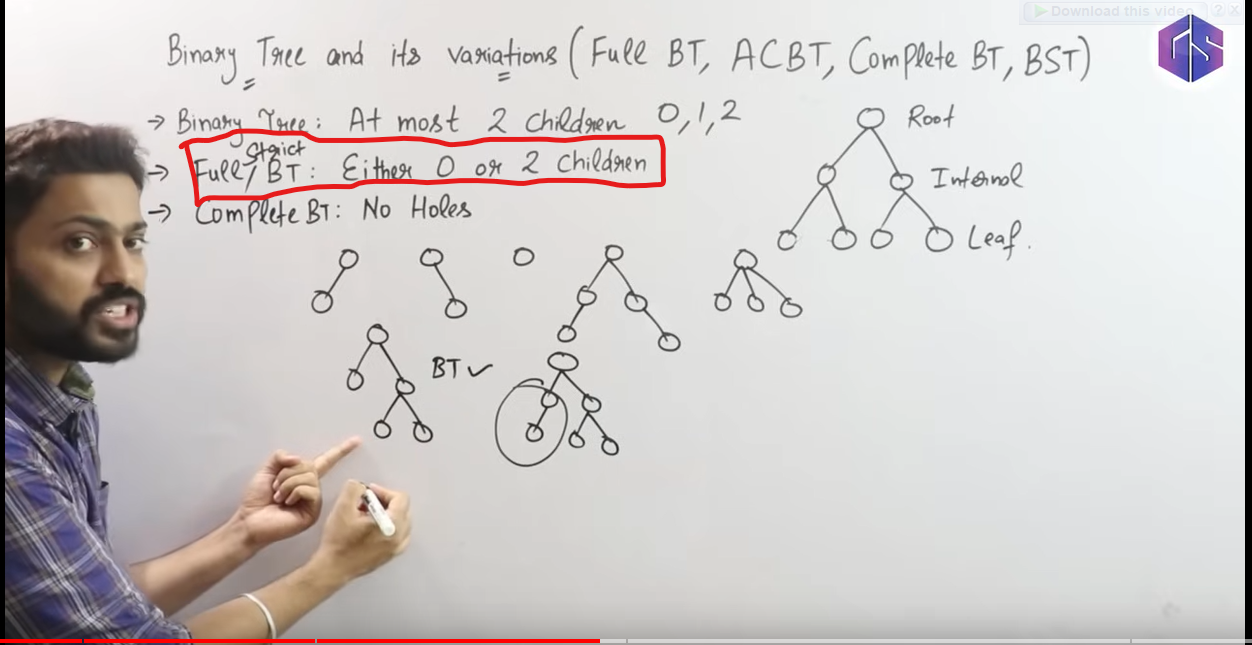 Download this video
Binary Tree and its variations (Full BT, ACBT, Complete BT, BST)
→ Binary Tree: At most 2 children 0,1,2
Strict
→ Full/BT: Either 0 or 2 children
→ Complete BT: No Holes
Root
Internal
Leaf.
BT ✓